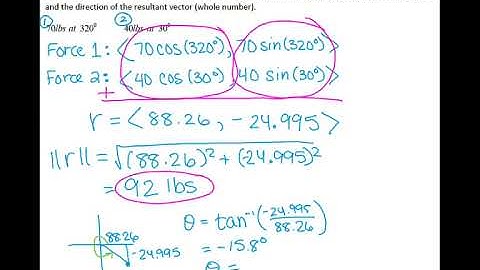 and the direction of the resultant vector (whole number).
① ②
70lbs at 320⁰ 40lbs at 30⁰
Force 1: ⟨70cos(320°), 70sin(320°)⟩
Force 2: ⟨40 cos(30°), 40 sin(30°)⟩
+
r = ⟨88.26, -24.995⟩
||r|| = √(88.26)² + (-24.995)²
= 92 lbs
θ = tan⁻¹(-24.995/88.26)
88.26
-24.995
= -15.8°
θ =